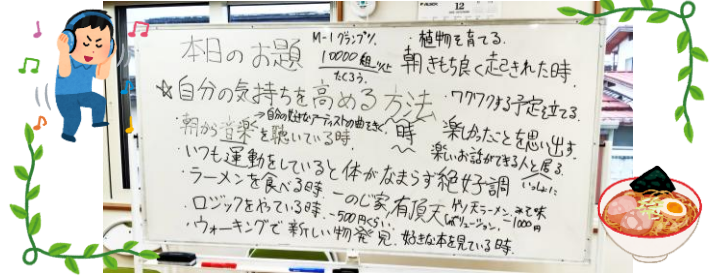 12
本日のお題
M-1グランプリ
10000組以上
たくろう
・植物を育てる。
朝きもち良く起きれた時。
☆自分の気持ちを高める方法
時
・ワクワクする予定を立てる。
→自分の好きなアーティストの曲をきく。
・朝から音楽を聴いている時
楽しかったことを思い出す。
楽しいお話ができる人と居る。
いっしょに
・いつも運動をしていると体がなまらず絶好調
・ラーメンを食べる時 一のじ家 有頂天
ゲリ天ラーメン、みそ味
ボリューション。 1000円
・ロジックをやっている時、500円ぐらい
・ウォーキングで新しい物発見、好きな本を見ている時。